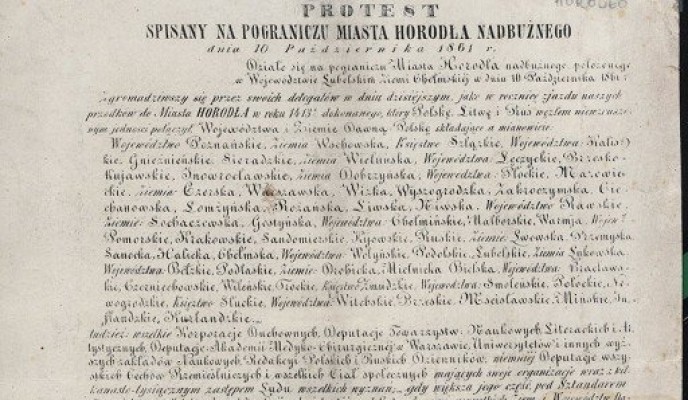 HORODŁO
PROTEST
SPISANY NA POGRANICZU MIASTA HORODŁA NADBUŻNEGO
dnia 10 Października 1861 r.
Działo się na pograniczu Miasta Horodła nadbużnego położonego
w Województwie Lubelskim Ziemi Chełmskiej w dniu 10 Października 1861 r.
Zgromadziwszy się przez swoich delegatów w dniu dzisiejszym, jako w rocznicę zjazdu naszych
przodków do Miasta HORODŁA w roku 1413m dokonanego, który Polskę, Litwę i Ruś węzłem niewzrusze-
nym jedności połączył, Województwa i Ziemie Dawną Polskę składające a mianowicie:
Województwo Poznańskie, Ziemia Wschowska, Księstwo Szlązkie, Województwa: Kalis-
kie, Gnieźnieńskie, Sieradzkie, Ziemia Wieluńska, Województwa: Łęczyckie, Brzesko-
Kujawskie, Inowrocławskie, Ziemia Dobrzyńska, Województwa: Płockie, Mazowiec-
kie, Ziemia: Czerska, Warszawska, Wizka, Wyszogrodzka, Zakroczymska, Cie-
chanowska, Łomżyńska, Rożańska, Liwska, Niwska, Województwo Rawskie,
Ziemie: Sochaczewska, Gostyńska, Województwa: Chełmińskie, Malborskie, Warmja, Wojew:
Pomorskie, Krakowskie, Sandomierskie, Kijowskie, Ruskie, Ziemie: Lwowska, Przemyska
Sanocka, Halicka, Chełmska, Województwa: Wołyńskie, Podolskie, Lubelskie, Ziemia Łukowska,
Województwa: Bełzkie, Podlaskie, Ziemie: Drohicka, Mielnicka Bielska, Województwa: Bracławs-
kie, Czerniechowskie, Wileńskie, Trockie, Księstwo Żmudzkie, Województwa: Smoleńskie, Połockie, No-
wogrodzkie, Księstwo Słuckie, Województwa: Witebskie, Brzeskie, Mścisławskie, Mińskie, In-
flandzkie, Kurlandzkie,
tudzież: wszelkie Korporacje Duchownych, Deputacje Towarzystw: Naukowych, Literackich i Ar-
tystycznych, Deputacje Akademii Medyko-Chirurgicznej w Warszawie, Uniwersytetów i innych wyż-
szych zakładów Naukowych, Redakcje Polskich i Ruskich Dzienników, niemniej Deputacje wszy-
stkich Cechów Rzemieślniczych i wszelkich Ciał społecznych mających swoje organizacje wraz z kil-
kanasto-tysięcznym zastępem Ludu wszelkich wyznań, gdy większa jego część pod Sztandarem